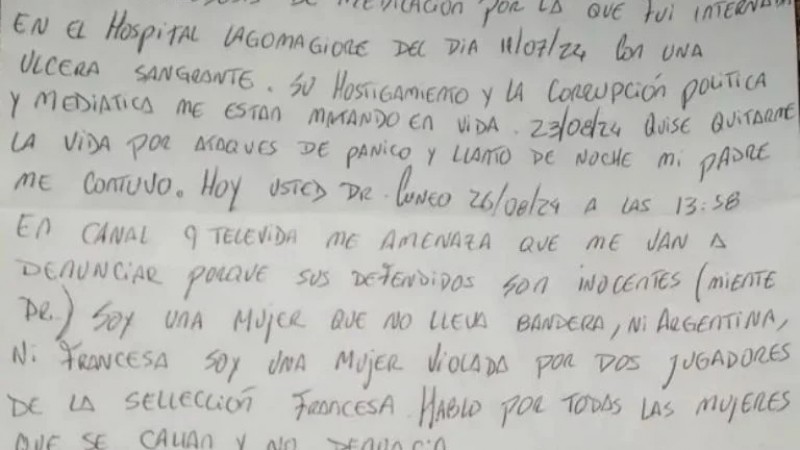 DE MEDICACIÓN POR LA QUE FUI INTERNADA
EN EL HOSPITAL LAGOMAGIORE DEL DIA 11/07/24 CON UNA
ULCERA SANGRANTE. SU HOSTIGAMIENTO Y LA CORRUPCIÓN POLITICA
Y MEDIATICA ME ESTAN MATANDO EN VIDA. 23/08/24 QUISE QUITARME
LA VIDA POR ATAQUES DE PANICO Y LLANTO DE NOCHE MI PADRE
ME CONTUVO. HOY USTED DR. CUNEO 26/08/24 A LAS 13:58
EN CANAL 9 TELEVIDA ME AMENAZA QUE ME VAN A
DENUNCIAR PORQUE SUS DEFENDIDOS SON INOCENTES (MIENTE
DR.) SOY UNA MUJER QUE NO LLEVA BANDERA, NI ARGENTINA,
NI FRANCESA SOY UNA MUJER VIOLADA POR DOS JUGADORES
DE LA SELLECCIÓN FRANCESA. HABLO POR TODAS LAS MUJERES
QUE SE CALLAN Y NO DENUNCIA